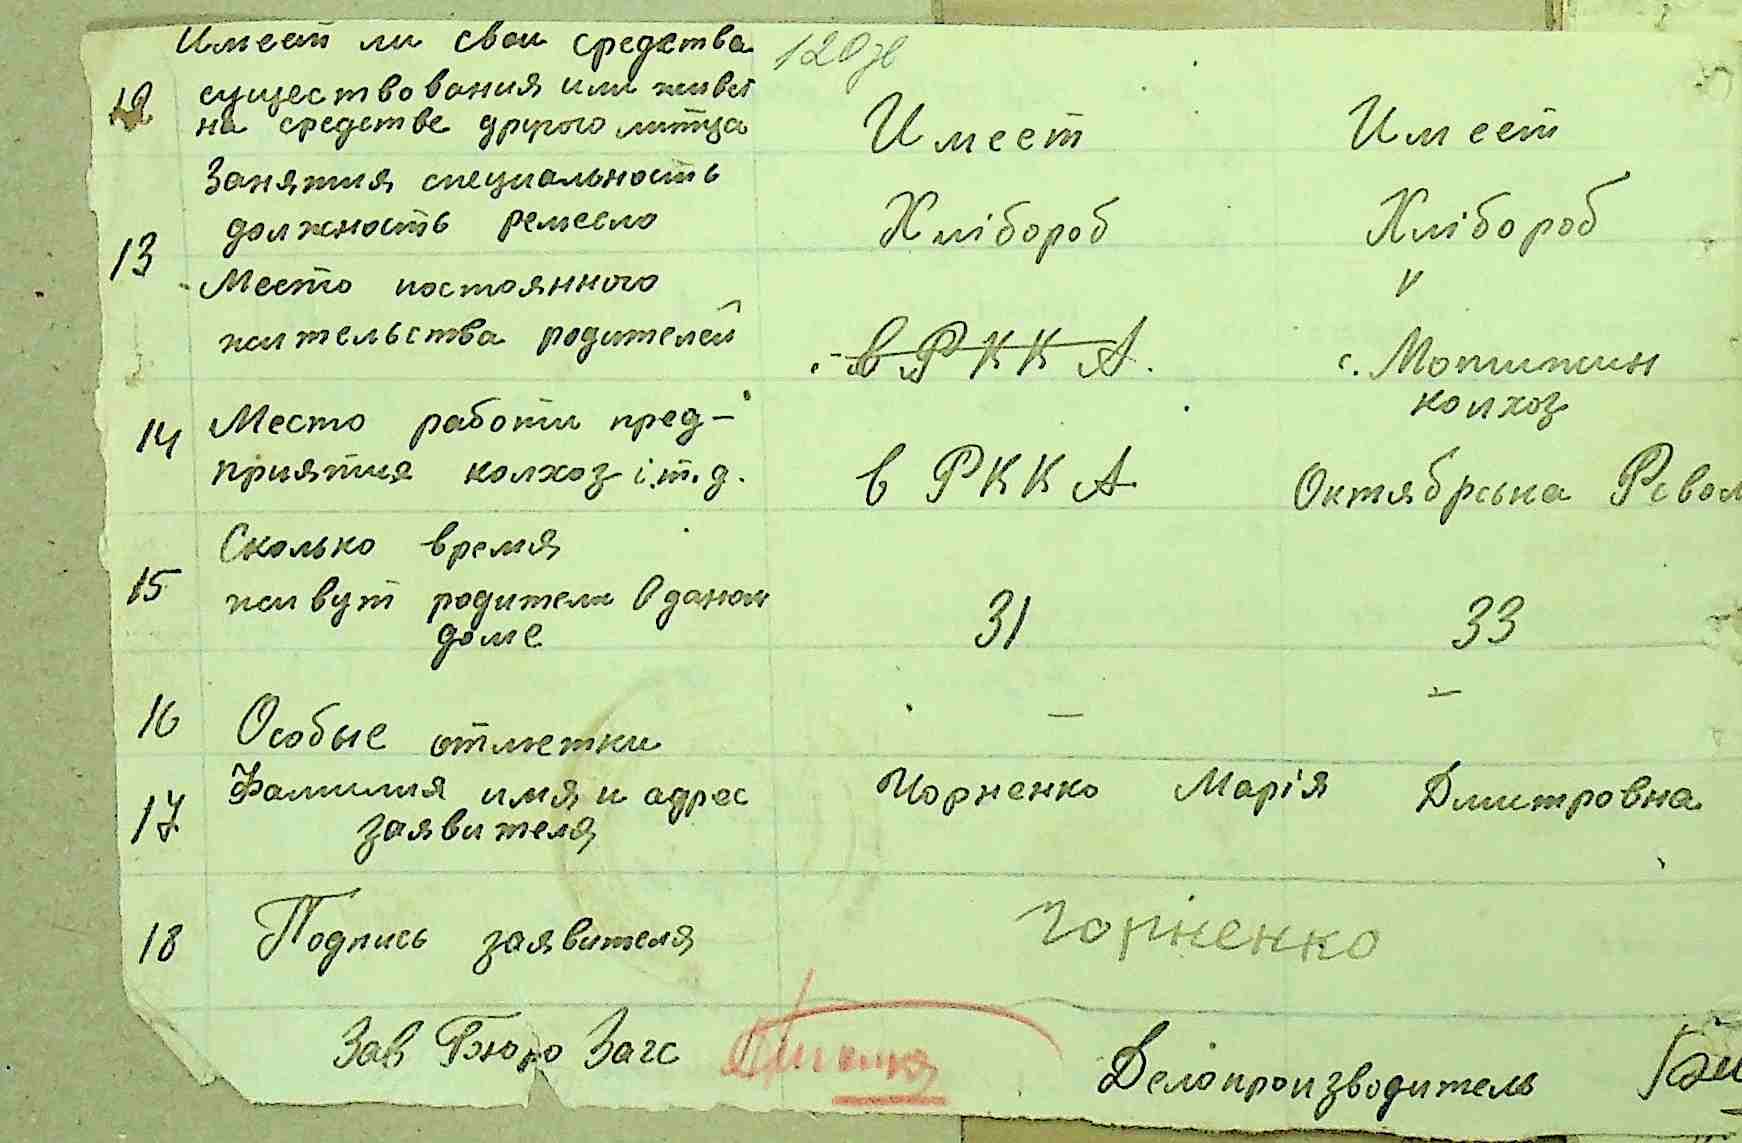 Имеет ли свои средства
120зв
12 существования или живет
на средстве другого литца Имеет Имеет
Занятия специальность
13 должность ремесло Хлібороб Хлібороб
Место постоянного "
жительства родителей в РККА с. Мотижин
14 Место работи пред- колхоз
приятия колхоз і.т.д. в РККА ОктябрськаРевол
Сколько время
15 живут родители в даном 31 33
доме
16 Особые отметки — –
17 Фамилия имя и адрес Чорненко Марія Дмитровна
заявителя
18 Подпись заявителя Чорненко
Зав Бюро Загс Делопроизводитель